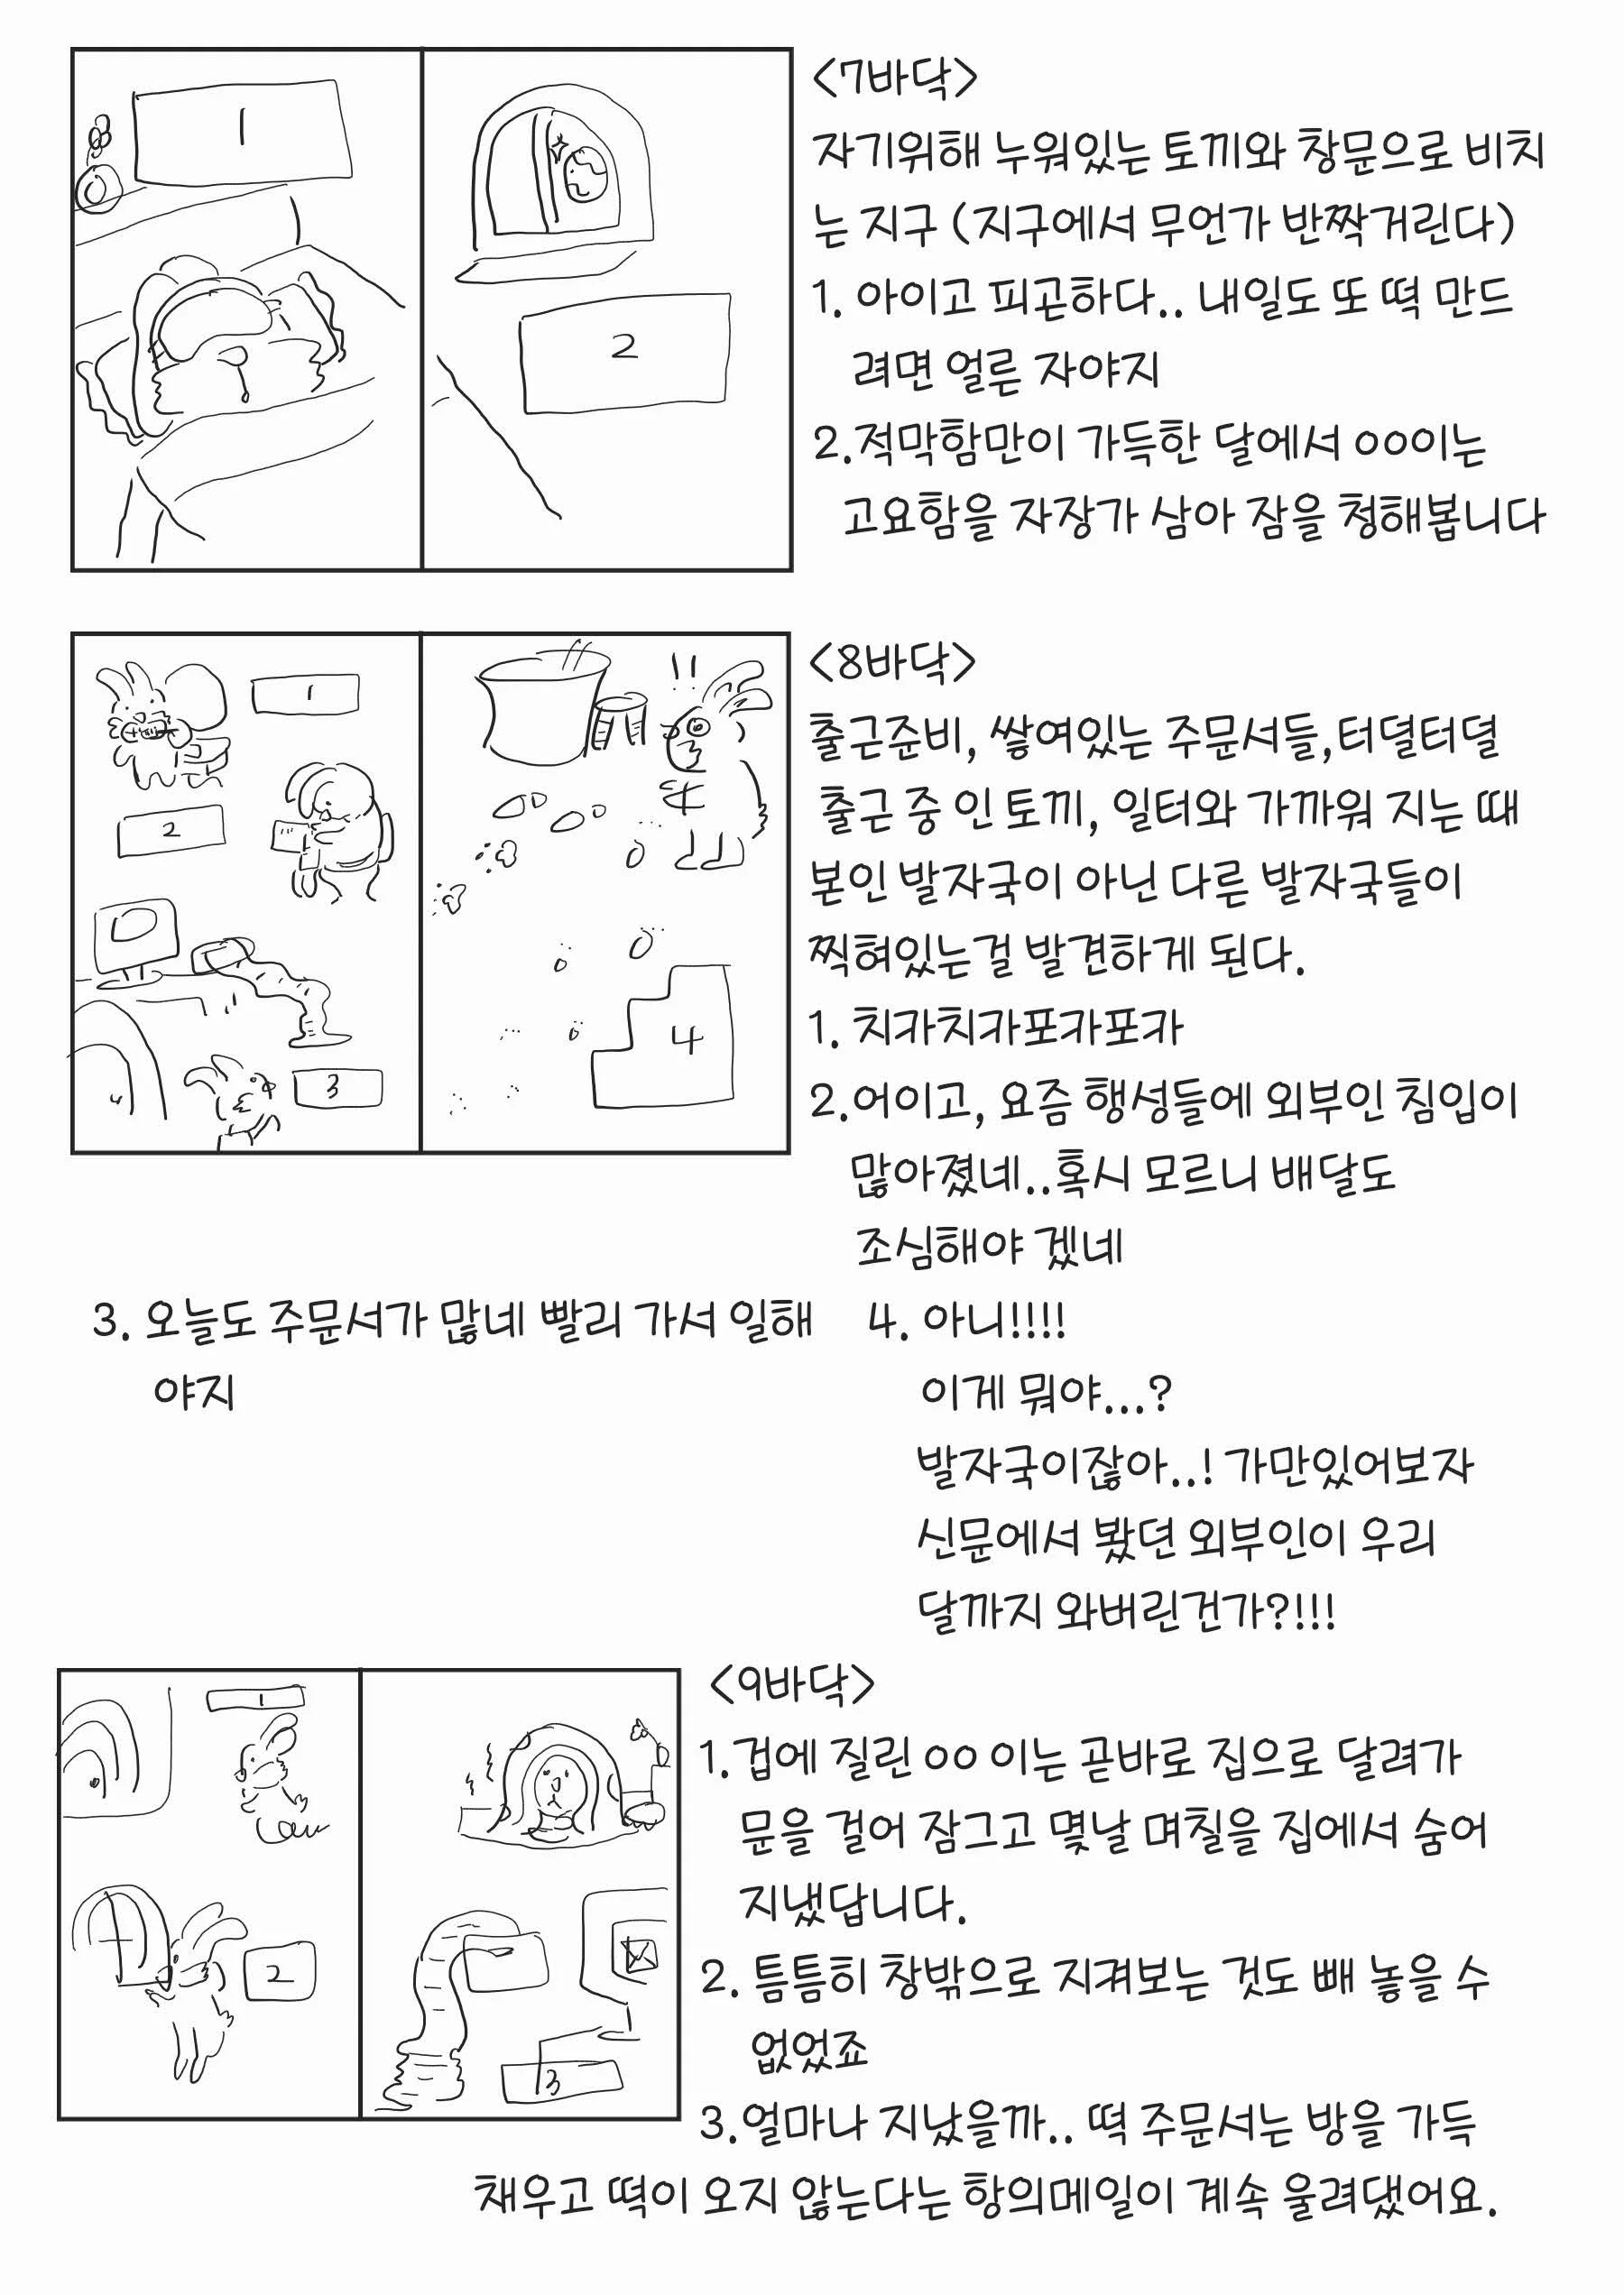 1
2
<7바닥>
자기위해 누워있는 토끼와 창문으로 비치
는 지구 (지구에서 무언가 반짝거린다)
1. 아이고 피곤하다.. 내일도 또 떡 만드
려면 얼른 자야지
2.적막함만이 가득한 달에서 ㅇㅇㅇ이는
고요함을 자장가 삼아 잠을 청해봅니다
1
2
3
!!
4
<8바닥>
출근준비, 쌓여있는 주문서들,터덜터덜
출근 중 인 토끼, 일터와 가까워 지는 때
본인 발자국이 아닌 다른 발자국들이
찍혀있는걸 발견하게 된다.
1. 치카치카포카포카
2.어이고, 요즘 행성들에 외부인 침입이
많아졌네..혹시 모르니 배달도
조심해야 겠네
3. 오늘도 주문서가 많네 빨리 가서 일해
야지
4. 아니!!!!
이게 뭐야...?
발자국이잖아..! 가만있어보자
신문에서 봤던 외부인이 우리
달까지 와버린건가?!!!
1
2
3
<9바닥>
1.겁에 질린 ㅇㅇ 이는 곧바로 집으로 달려가
문을 걸어 잠그고 몇날 며칠을 집에서 숨어
지냈답니다.
2. 틈틈히 창밖으로 지켜보는 것도 빼 놓을 수
없었죠
3.얼마나 지났을까.. 떡 주문서는 방을 가득
채우고 떡이 오지 않는다는 항의메일이 계속 울려댔어요.